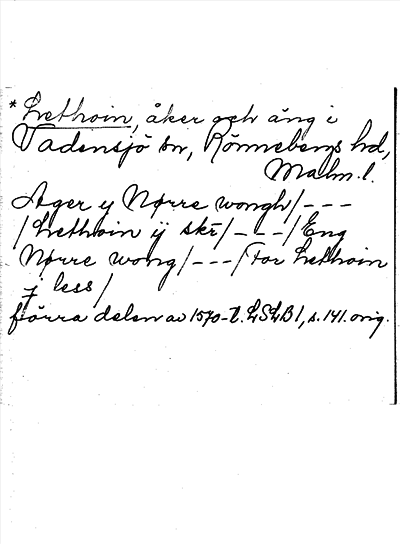 *Lrethoin, åker och äng i
Vadensjö sn, Rönnebergs hd,
Malm.l.
Ager y Nørre wongh/---
/Lrethoin ij skr/---/Eng
Nørre wong/---/For Lrethoin
j less/
förra delen av 1570-t. LSLB1, s. 141. orig.